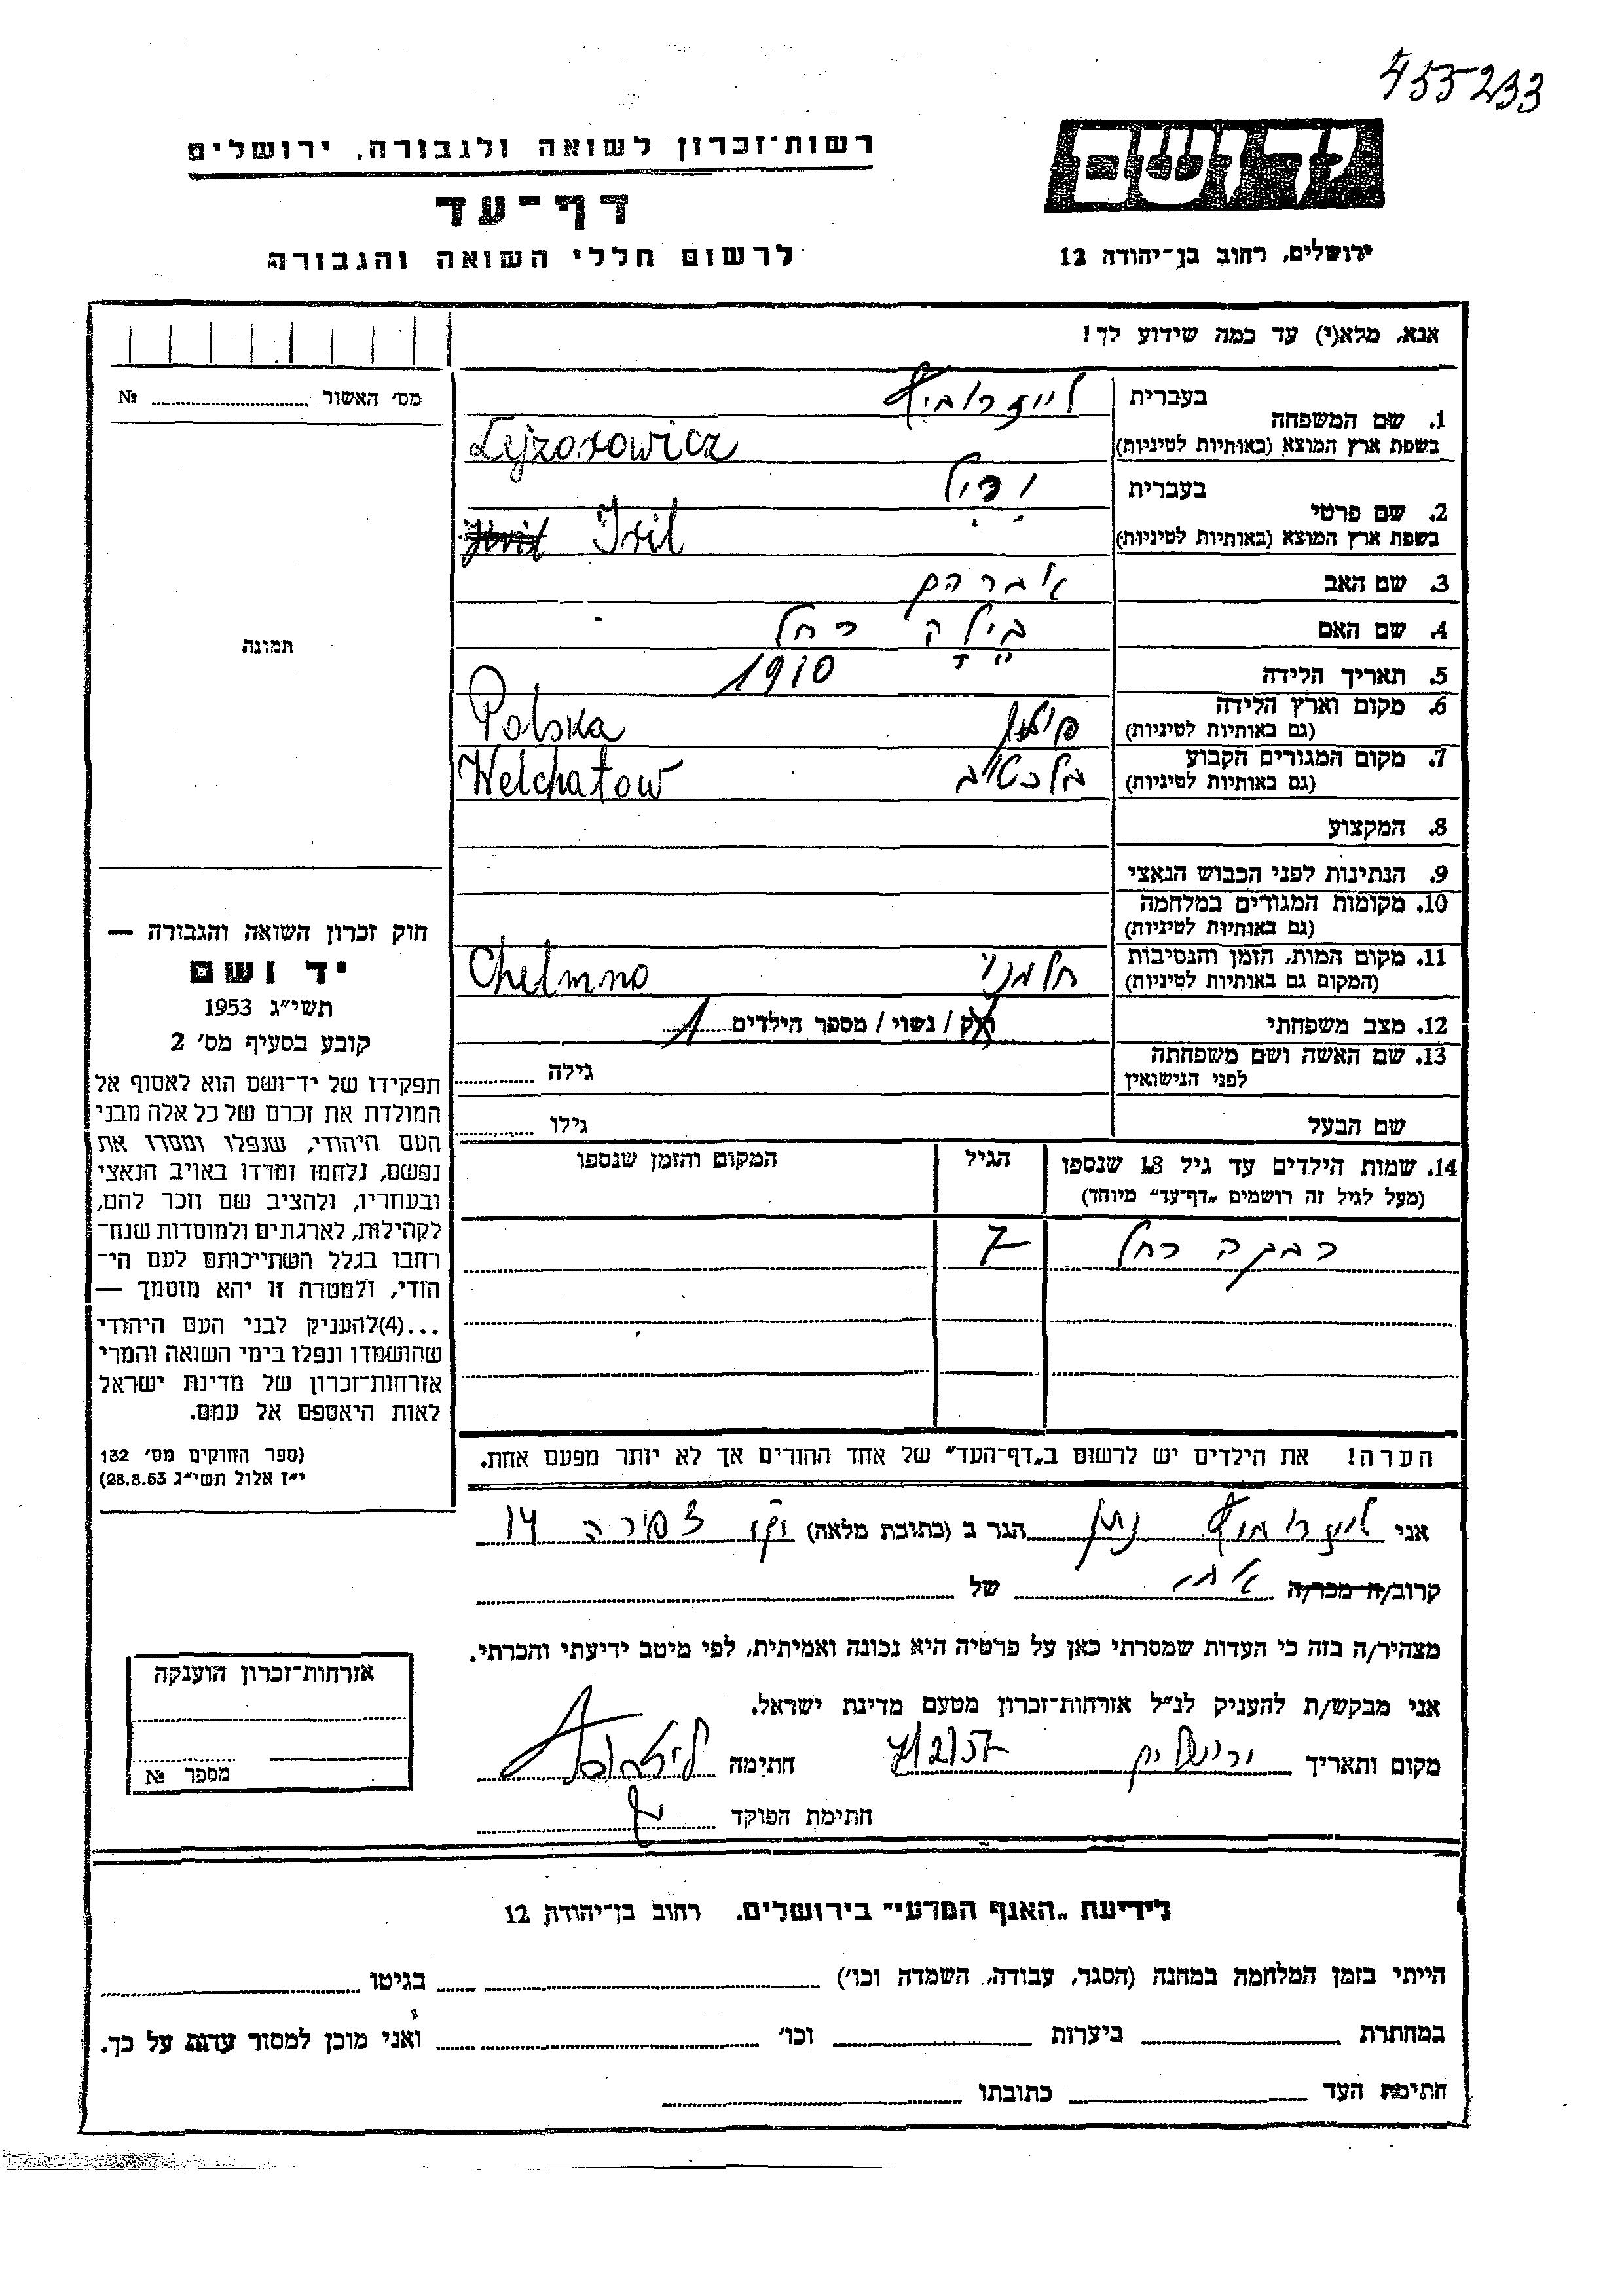 455233
יד ושם
רשות־זכרון לשואה ולגבורה, ירושלים
דף־עד
לרשום חללי השואה והגבורה
ירושלים, רחוב בן־יהודה 12
אנא, מלא(י) עד כמה שידוע לך!
מס׳ האשור № 
1. שם המשפחה בעברית לייזרוביץ
בשפת ארץ המוצא (באותיות לטיניות) Lejzorowicz
2. שם פרטי בעברית
בשפת ארץ המוצא (באותיות לטיניות) Isril
3. שם האב אברהם
4. שם האם בילה רחל
5. תאריך הלידה 1910
6. מקום וארץ הלידה פולין Polska
(גם באותיות לטיניות)
7. מקום המגורים הקבוע בלכטוב Welchatow
(גם באותיות לטיניות)
8. המקצוע
9. הנתינות לפני הכבוש הנאצי
10. מקומות המגורים במלחמה
(גם באותיות לטיניות)
11. מקום המות, הזמן והנסיבות חלמנו Chelmno
(המקום גם באותיות לטיניות)
12. מצב משפחתי רוק / נשוי / מספר הילדים 1
13. שם האשה ושם משפחתה גילה
לפני הנישואין
שם הבעל גילו
14. שמות הילדים עד גיל 18 שנספו הגיל המקום והזמן שנספו
(מעל לגיל זה רושמים „דף־עד״ מיוחד)
רבקה רחל 7
הערה! את הילדים יש לרשום ב„דף־העד״ של אחד ההורים אך לא יותר מפעם אחת.
תמונה
חוק זכרון השואה והגבורה —
יד ושם
תשי״ג 1953
קובע בסעיף מס׳ 2
תפקידו של יד־ושם הוא לאסוף אל
המולדת את זכרם של כל אלה מבני
העם היהודי, שנפלו ומסרו את
נפשם, נלחמו ומרדו באויב הנאצי
ובעוזריו, ולהציב שם וזכר להם,
לקהילות, לארגונים ולמוסדות שנח־
רחבו בגלל השתייכותם לעם הי־
הודי, ולמטרה זו יהא מוסמך —
...(4)להעניק לבני העם היהודי
שהושמדו ונפלו בימי השואה והמרי
אזרחות־זכרון של מדינת ישראל
לאות היאספם אל עמם.
(ספר החוקים מס׳ 132
י״ז אלול תשי״ג 28.8.53)
אני לייזרוביץ נתן הגר ב (כתובת מלאה) צפירה 14
קרוב/ה מכר/ה אחי של
מצהיר/ה בזה כי העדות שמסרתי כאן על פרטיה היא נכונה ואמיתית, לפי מיטב ידיעתי והכרתי.
אני מבקש/ת להעניק לנ״ל אזרחות־זכרון מטעם מדינת ישראל.
מקום ותאריך ירושלים 7/2/57 חתימה
חתימת הפוקד
אזרחות־זכרון הוענקה
מספר №
לידיעת „האגף המדעי״ בירושלים. רחוב בן־יהודה 12
הייתי בזמן המלחמה במחנה (הסגר, עבודה, השמדה וכו׳) בגיטו
במחתרת ביערות וכו׳ ואני מוכן למסור עדות על כך.
חתימת העד כתובתו